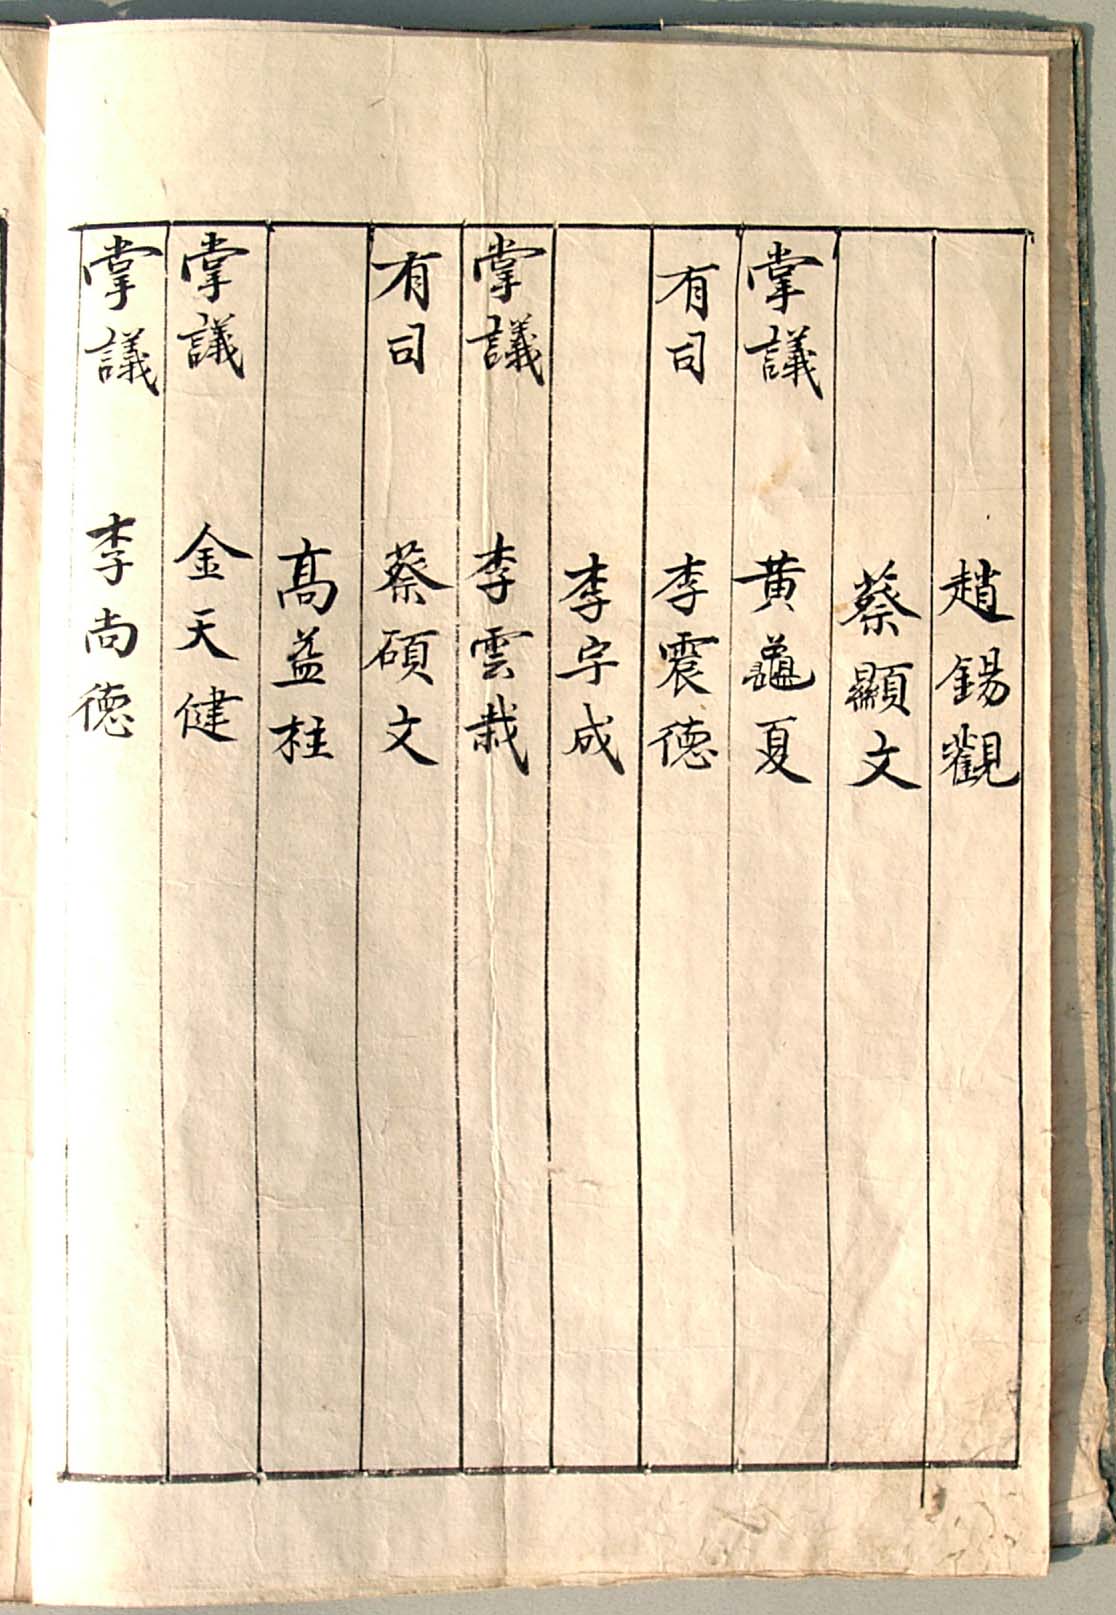 趙錫觀
蔡顯文
掌議 黄龜夏
有司 李震德
李宇成
掌議 李雲栽
有司 蔡碩文
髙益柱
掌議 金天健
掌議 李尙德